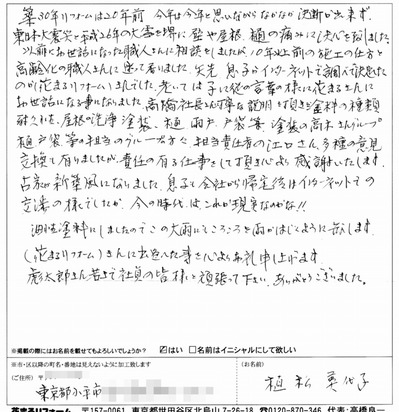 築30年リフォームは20年前 今年は今年と思いながらなかなか決断が出来ず、
東日本大震災と平成26年の大雪を境に、壁や屋根、樋の痛みに決心を致しました。
以前にお世話になった職人さんに相談をしましたが、10年以上前の施工の仕方と
高齢化の職人さんに迷って居りました。矢先 息子がインターネットで調べて決めた
のが(花まるリフォーム)さんでした。老いては子に従の言葉の様に花まるさんに
お世話になる事になりました。高橋社長さんの丁寧な説明を頂き塗料の種類
耐久性を、屋根の洗浄 塗装、樋 雨戸、戸袋等 塗装の高木さんグループ
樋戸袋等の担当のグループの方々 担当責任者の江口さん、多種の意見
交換で有りましたが、責任の有る仕事をして頂き心より感謝いたします。
古家が新築風になりました。息子も会社から帰宅後はインターネットでの
交流の様でしたが、今の時代は、これが現実なのかな!!
油性塗料にしましたのでこの大雨にてころころと雨がはじくように感じます。
(花まるリフォーム)さんに出逢えた事を心よりお礼申し上げます。
虎太郎さん若さで社員の皆様と頑張って下さい。ありがとうございました。
※掲載の際にはお名前を載せてもよろしいでしょうか? ☑はい □名前はイニシャルにして欲しい
※市・区以降の町名・番地は見えないように加工致します
(ご住所) 〒
東京都小平市
(お名前)
植松
花まるリフォーム 〒157-0061 東京都世田谷区北烏山7-26-18 ☎0120-870-346 代表:高橋良一